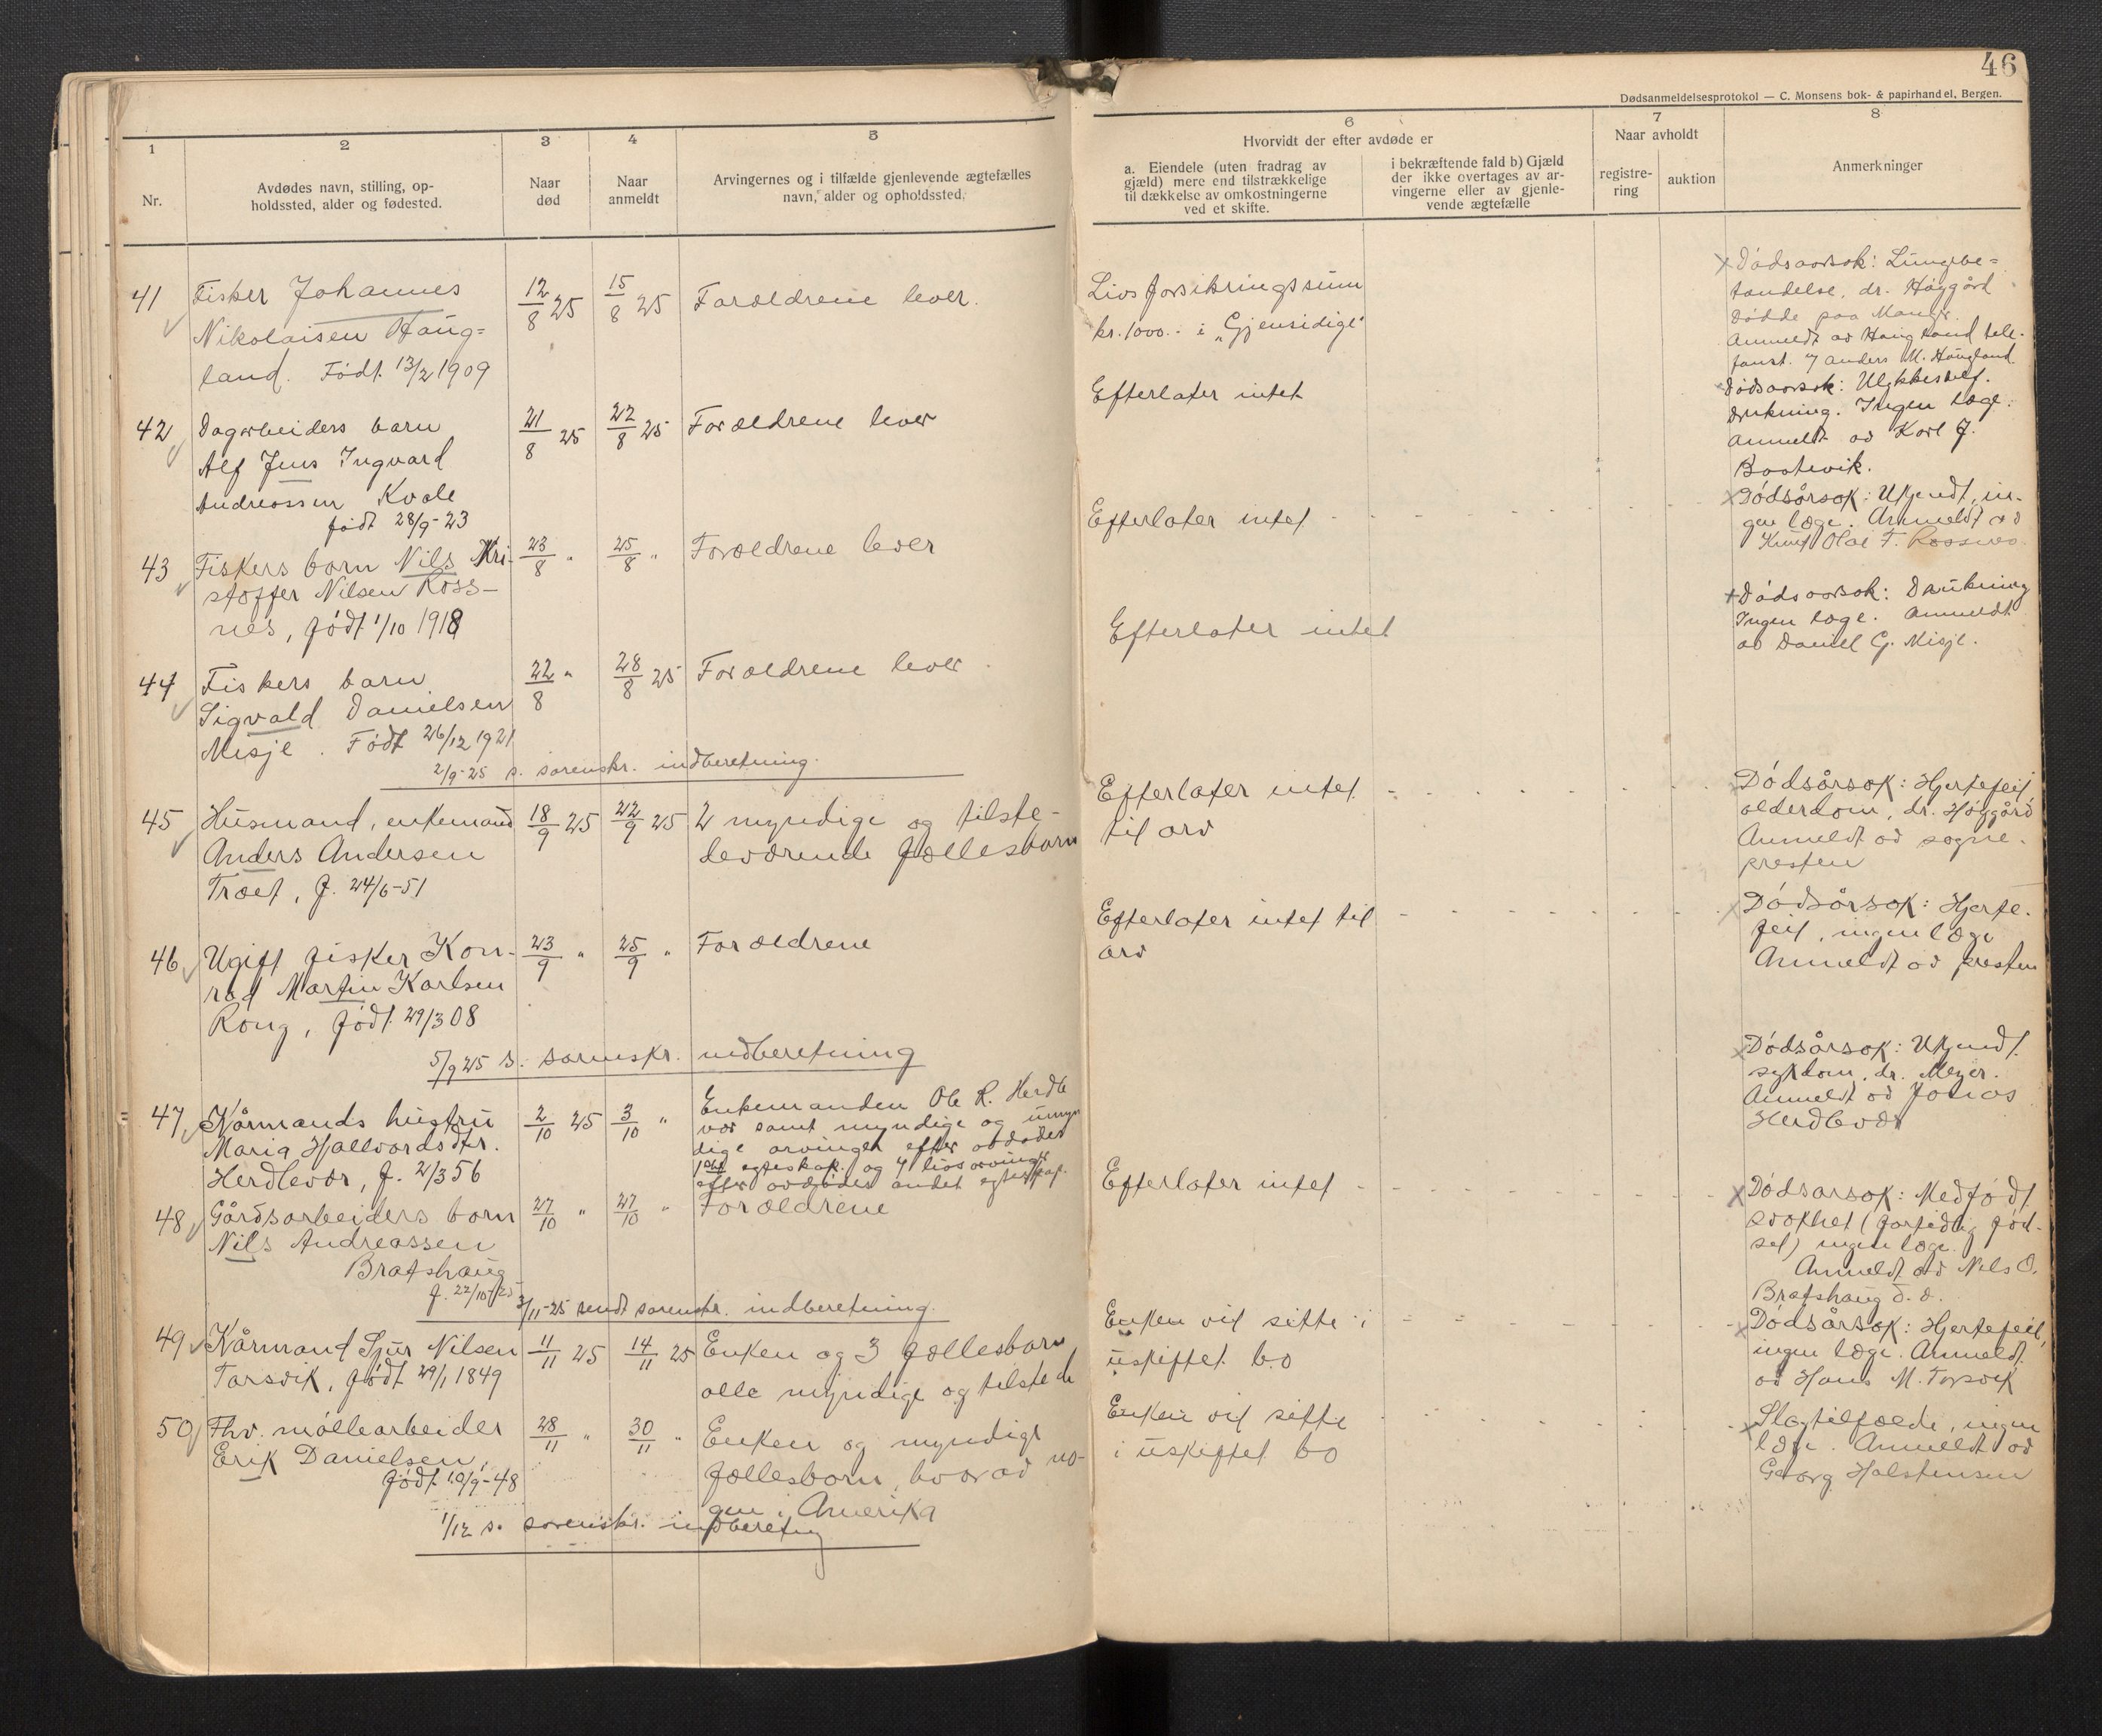 46
Dødsanmeldelsesprotokol — C. Monsens bok- & papirhandel, Bergen.
1
Nr.
2
Avdødes navn, stilling, op-
holdssted, alder og fødested.
3
Naar
død
4
Naar
anmeldt
5
Arvingernes og i tilfælde gjenlevende ægtefælles
navn, alder og opholdssted.
6
Hvorvidt der efter avdøde er
a. Eiendele (uten fradrag av
gjæld) mere end tilstrækkelige
til dækkelse av omkostningerne
ved et skifte.
i bekræftende fald b) Gjæld
der ikke overtages av ar-
vingerne eller av gjenle-
vende ægtefælle
7
Naar avholdt
registre-
ring
auktion
8
Anmerkninger
41
Fisker Johannes
Nikolaisen Haug-
land. Født 13/2 1909
12/8 25
15/8 25
Forældrene lever.
Livsforsikringssum
kr. 1000.- i „Gjensidige"
Dødsaarsak: Lungebe-
tændelse, dr. Høygård
Døde paa Manger.
Anmeldt av Haugland tele-
fonst. v/ Anders M. Haugland
42
Dagarbeiders barn
Alf Jens Ingvard
Andreassen Kvale
født 28/9-23
21/8 25
22/8 25
Forældrene lever
Efterlater intet
Dødsaarsak: Ulykkestilf.
Drukning. Ingen læge.
Anmeldt av Karl J.
43
Fiskers barn Nils Kri-
stoffer Nilsen Ross-
nes, født 1/10 1918
23/8 "
25/8 "
Forældrene lever
Efterlater intet
Dødsårsak: Ukjendt, in-
gen læge. Anmeldt av
Olai T. Rossnes
44
Fiskers barn
Sigvald Danielsen
Misje. Født 26/12 1921
22/8 "
28/8 25
Forældrene lever
Efterlater intet
Dødsaarsak: Drukning
Ingen læge. Anmeldt
av Daniel G. Misje.
2/9-25 s. sorenskr. indberetning.
45
Husmand, enkemand
Anders Andersen
Træet, f. 24/6-51
18/9 25
22/9 25
2 myndige og tilste-
deværende fællesbarn
Efterlater intet
til arv
Dødsårsak: Hjertefeil
alderdom, dr. Høygård
Anmeldt av sogne-
presten
46
Ugift fisker Kon-
rad Martin Karlsen
Rong, født 29/3 08
23/9 "
25/9 "
Forældrene
Efterlater intet til
arv
Dødsårsak: Hjerte-
feil, ingen læge
Anmeldt av presten
5/9 25 s. sorenskr. indberetning
47
Kårmands hustru
Maria Hallvardsdtr.
Herdlevær, f. 2/3 56
2/10 25
3/10 "
Enkemanden Ole R. Herdle
vær samt myndige og umyn
dige arvinger efter avdødes
1ste egteskap og 4 livsarvinger
efter avdødes andet egteskap.
Dødsårsak: Ukjendt
sykdom, dr. Meyer.
Anmeldt av
Herdlevær
48
Gårdsarbeiders barn
Nils Andreassen
Bratshaug
f. 22/10-25
27/10 "
27/10 "
Forældrene
Efterlater intet
Dødsarsak: Medfødt
svakhet (fortidlig fød-
sel) ingen læge.
Anmeldt av Nils O.
Bratshaug d. d.
3/11-25 sendt sorenskr. indberetning.
49
Kårmand Sjur Nilsen
Torsvik, født 29/1 1849
11/11 25
14/11 25
Enken og 3 fællesbarn
alle myndige og tilstede
Enken vil sitte i
uskiftet bo
Dødsårsak: Hjertefeil,
ingen læge. Anmeldt
av Hans M. Torsvik
50
Fhv. møllearbeider
Erik Danielsen,
født 10/9-48
28/11 "
30/11 "
Enken og myndige
fællesbarn, hvorav no-
gen i Amerika
Enken vil sitte
i uskiftet bo
Slagtilfælde, ingen
læge. Anmeldt av
Georg Halstensen
1/12 s. sorenskr. indberetng